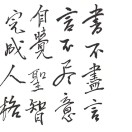 書不盡言
言不尽意
自覺聖智
完成人格